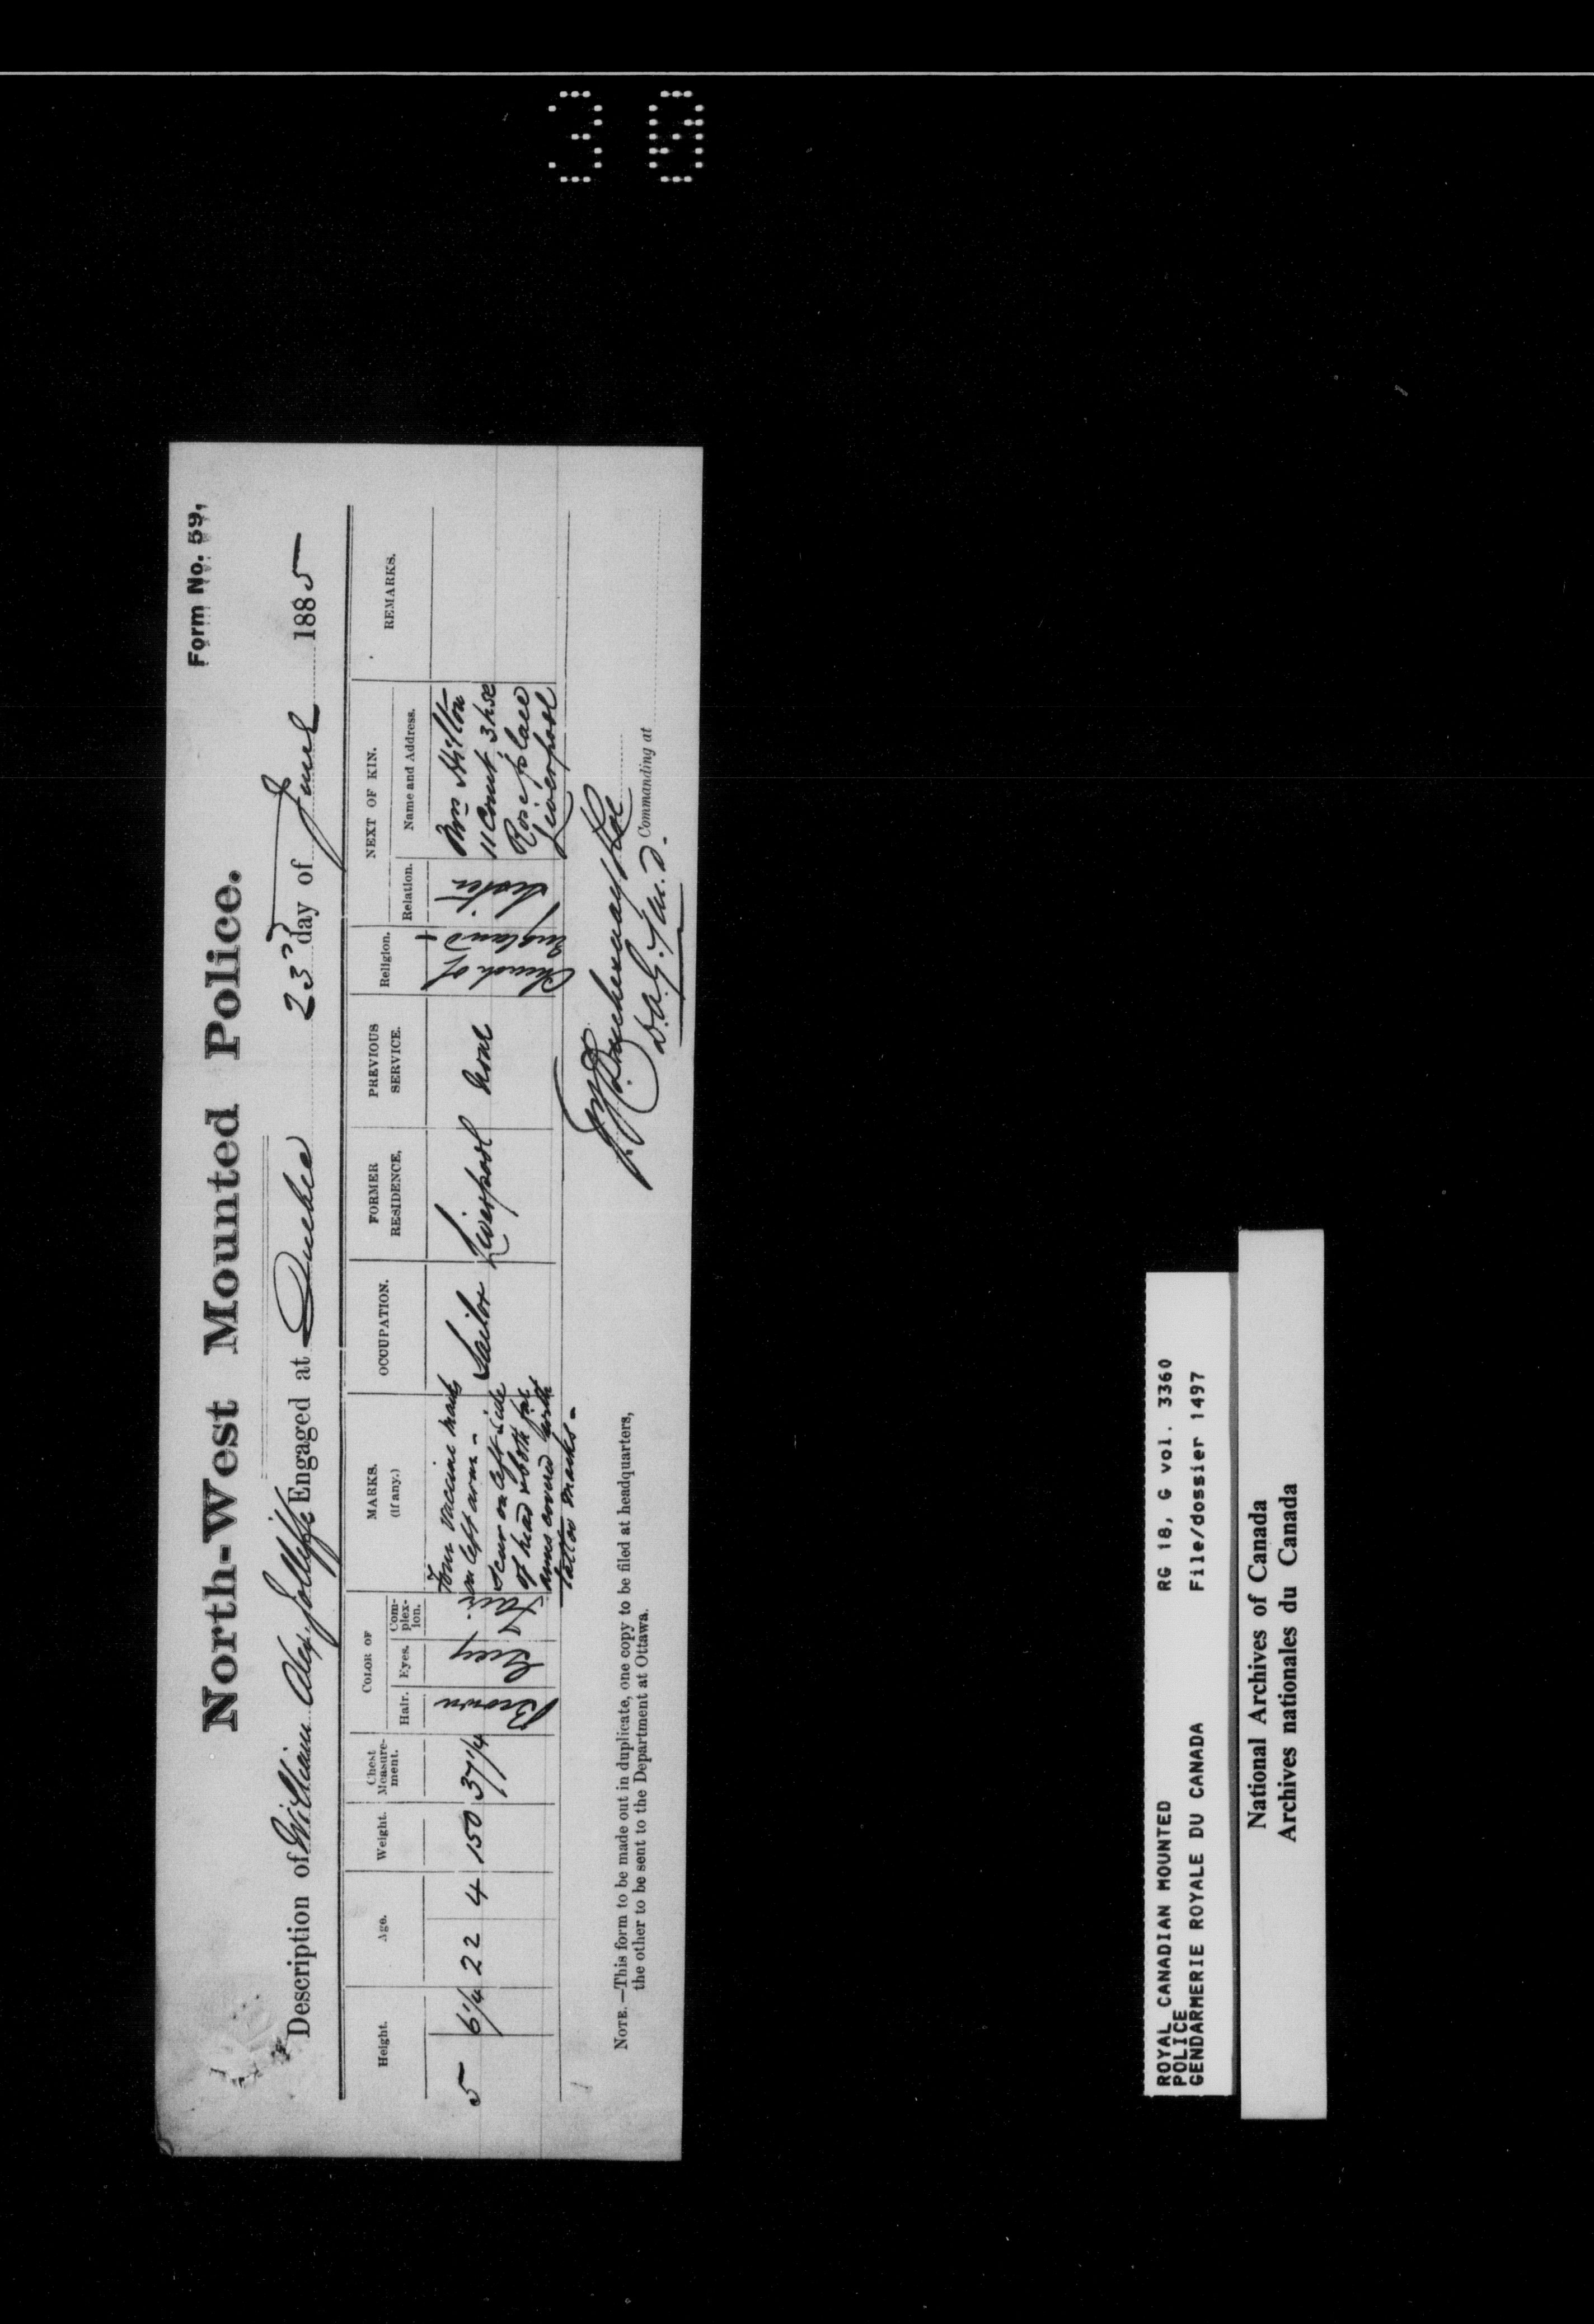 30
Form No. 59,
North-West Mounted Police.
Description of William Alex. Jolliffe Engaged at Quebec 23rd day of June 1885
Height. Age. Weight. Chest Measure-ment. COLOR OF Hair. Eyes. Com-plex-ion. MARKS. (if any.) OCCUPATION. FORMER RESIDENCE. PREVIOUS SERVICE. Religion. NEXT OF KIN. Relation. Name and Address. REMARKS.
5 6 1/4 22 4 150 37 1/4 Brown Grey Fair.
Four vaccine marks
on left arm -
scar on left side
of head & both fore
arms covered with
tattoo marks -
Sailor Liverpool None
Church of
England
Sister
Mrs Hilton
11 Court 3 hse
Rose place
Liverpool
D.A.G. 7 M.D. Commanding at
NOTE.—This form to be made out in duplicate, one copy to be filed at headquarters,
the other to be sent to the Department at Ottawa.
ROYAL CANADIAN MOUNTED RG 18, G vol. 3360
POLICE
GENDARMERIE ROYALE DU CANADA File/dossier 1497
National Archives of Canada
Archives nationales du Canada